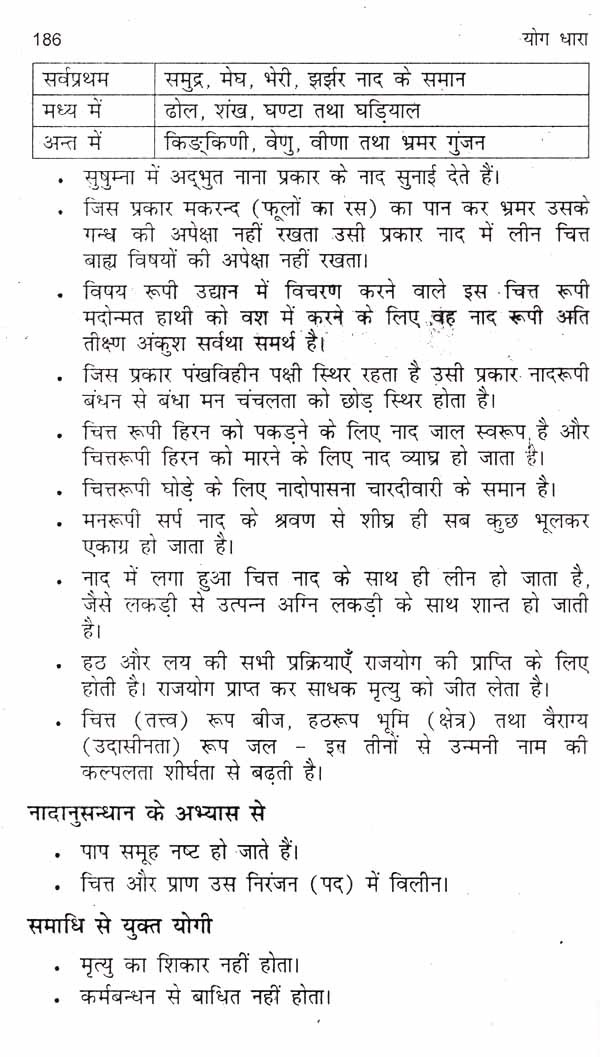 186 योग धारा
सर्वप्रथम समुद्र, मेघ, भेरी, झर्झर नाद के समान
मध्य में ढोल, शंख, घण्टा तथा घड़ियाल
अन्त में किङ्किणी, वेणु, वीणा तथा भ्रमर गुंजन
• सुषुम्ना में अद्भुत नाना प्रकार के नाद सुनाई देते हैं।
• जिस प्रकार मकरन्द (फूलों का रस) का पान कर भ्रमर उसके
गन्ध की अपेक्षा नहीं रखता उसी प्रकार नाद में लीन चित्त
बाह्य विषयों की अपेक्षा नहीं रखता।
• विषय रूपी उद्यान में विचरण करने वाले इस चित्त रूपी
मदोन्मत हाथी को वश में करने के लिए वह नाद रूपी अति
तीक्ष्ण अंकुश सर्वथा समर्थ है।
• जिस प्रकार पंखविहीन पक्षी स्थिर रहता है उसी प्रकार नादरूपी
बंधन से बंधा मन चंचलता को छोड़ स्थिर होता है।
• चित्त रूपी हिरन को पकड़ने के लिए नाद जाल स्वरूप है और
चित्तरूपी हिरन को मारने के लिए नाद व्याघ्र हो जाता है।
• चित्तरूपी घोड़े के लिए नादोपासना चारदीवारी के समान है।
• मनरूपी सर्प नाद के श्रवण से शीघ्र ही सब कुछ भूलकर
एकाग्र हो जाता है।
• नाद में लगा हुआ चित्त नाद के साथ ही लीन हो जाता है,
जैसे लकड़ी से उत्पन्न अग्नि लकड़ी के साथ शान्त हो जाती
है।
• हठ और लय की सभी प्रक्रियाएँ राजयोग की प्राप्ति के लिए
होती है। राजयोग प्राप्त कर साधक मृत्यु को जीत लेता है।
• चित्त (तत्त्व) रूप बीज, हठरूप भूमि (क्षेत्र) तथा वैराग्य
(उदासीनता) रूप जल – इन तीनों से उन्मनी नाम की
कल्पलता शीर्घता से बढ़ती है।
नादानुसन्धान के अभ्यास से
• पाप समूह नष्ट हो जाते हैं।
• चित्त और प्राण उस निरंजन (पद) में विलीन।
समाधि से युक्त योगी
• मृत्यु का शिकार नहीं होता।
• कर्मबन्धन से बाधित नहीं होता।